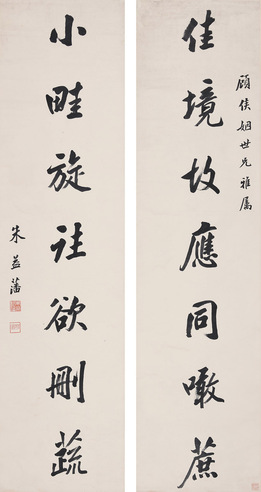 顧侯姻世兄雅屬
佳境故應同噉蔗
小畦旋欲刪蔬
朱益藩